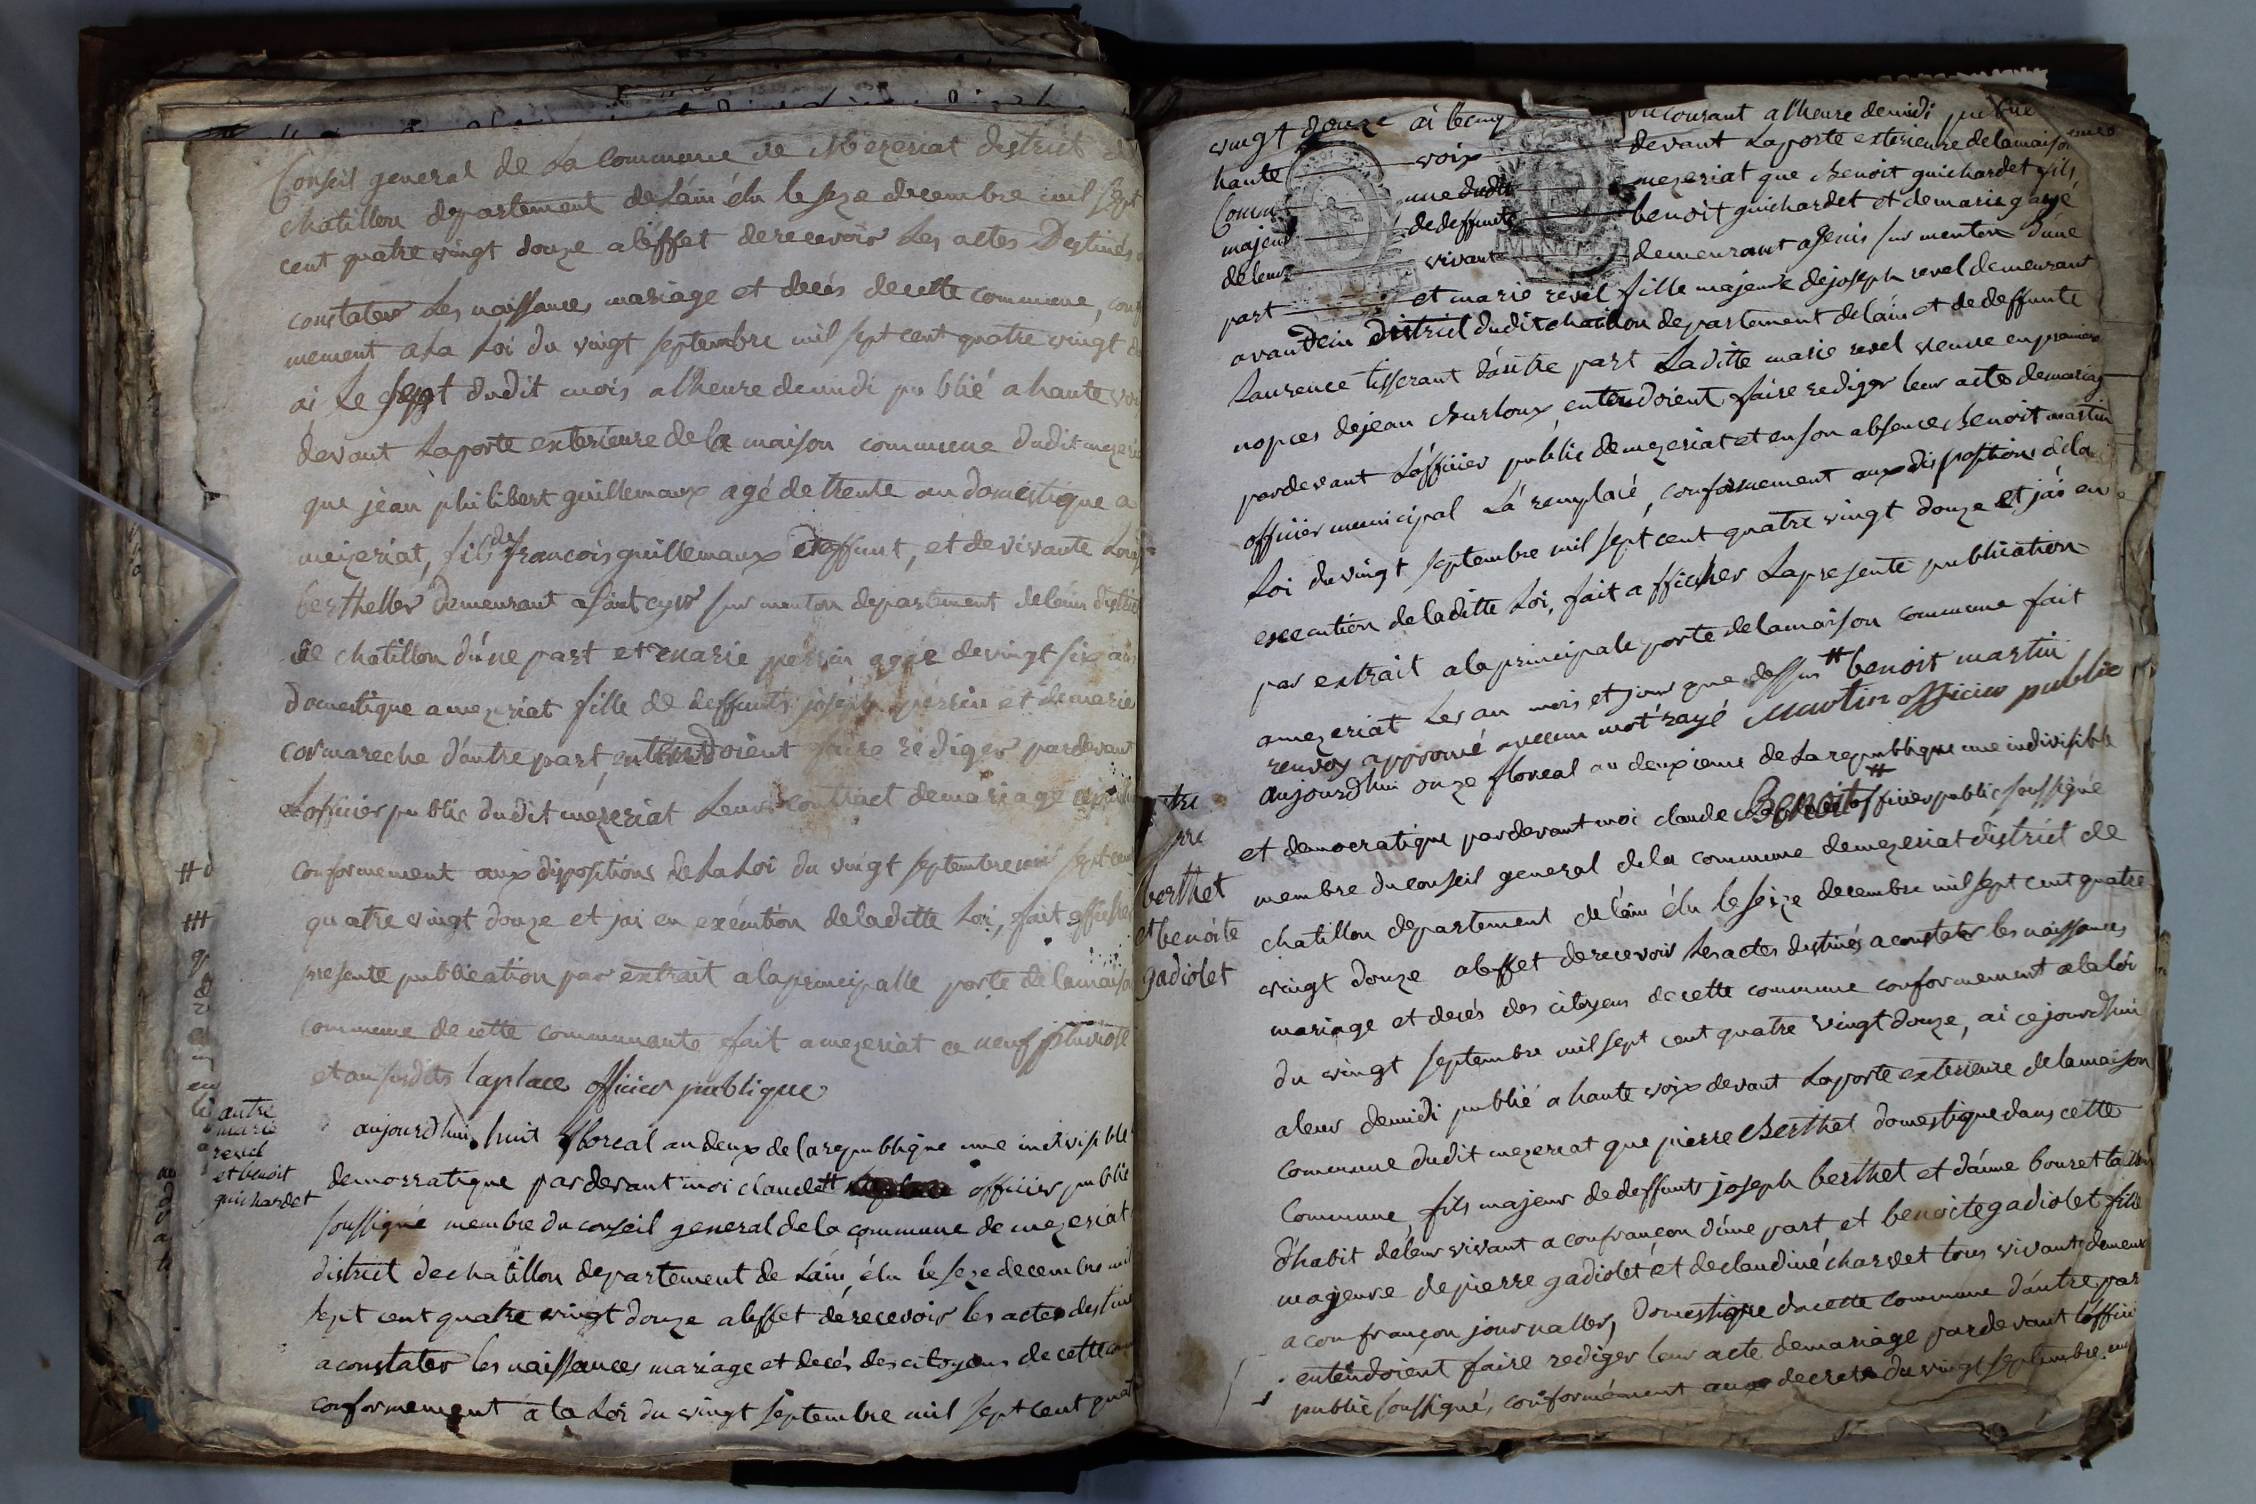 Conseil general de La Commune de Mezeriat district de
chatillon departement de Láin élu le seze decembre mil sept
cent quatre vingt douze a léffet de recevoir Les actes Destinés
constater Les naissances mariage et decés de cette commune, con
mement a La Loi du vingt septembre mil sept cent quatre vingt
ai Le sept dudit mois a l'heure de midi publié a haute voi
devant La porte exterieure de la maison commune dudit mezeri
que jéan philibert guillemaux agé de trente an domestique a
mezeriat, fils de francois guillemaux deffunt, et de vivante Loui
bertheller demeurant a saint cyr sur menton departement de láin distric
de chatillon d'úne part et marie perrin agée de vingt six ans
domestique a mezeriat fille de deffunts joseph perrin et de marie
cormareche d'autre part, entendoient faire rediger pardevant
Lofficier public dudit mezeriat Leur contract de mariage
conformement aux dispositions de La Loi du vingt septembre mil sept cent
quatre vingt douze et j'ai en exécution de laditte Loi, fait afficher
presente publication par extrait a la principalle porte de la maison
commune de cette communauté fait a mezeriat ce neuf pluviose
et an susdits laplace officier publique
autre
marie
revel
et benoit
guichardet
aujourdhui huit floreal an deux de la republique une indivisible
democratique pardevant moi claude officier public
soussigné membre du conseil general de la commune de mezeriat
district de chatillon departement de Láin élu le seze decembre mil
sept cent quatre vingt douze a leffet de recevoir les actes destinés
a constater les naissances mariage et decés des citoyens de cette com
conformement á la Loi du vingt septembre mil sept cent quat
vingt douze ai le cinq du courant a l'heure de midi publié
haute voix devant La porte exterieure de la maison
Comm une dudit mezeriat que Benoit guichardet fils
majeur de deffunts benoit guichardet et de marie
de leur vivant demeurant a Jenis sur menton d'une
part et marie revel fille majeure de joseph revel demeurant
a vandein district dudit chatillon departement de láin et de deffunte
Laurence tisserant d'autre part Laditte marie revel veuve en premiere
nopces de jean Burloux, entendoient faire rediger leur acte de mariag
pardevant Lófficier public de mezeriat et en son absence Benoit martin
officier municipal Lá remplacé, conformement aux dispositions de la
Loi du vingt septembre mil sept cent quatre vingt douze et j'ai en
execution de laditte Loi, fait afficher La presente publication
par extrait a la principale porte de la maison commune fait
a mezeriat Les an mois et jour que dessus # benoit martin
renvoy approuvé aucun mot rayé Martin officier public
berthet
et benoite
gadiolet
aujourdhui onze floreal an deuxieme de La republique une indivisible
et democratique pardevant moi claude Benoit # officier public soussigné
membre du conseil general de la commune de mezeriat district de
chatillon departement de láin élu le seize decembre mil sept cent quatre
vingt douze a leffet de recevoir Les actes destinés a constater les naissances
mariage et decés des citoyens de cette commune conformement a la loi
du vingt septembre mil sept cent quatre vingt douze, ai ce jourdhui
a leur de midi publié a haute voix devant La porte exterieure de la maison
commune dudit mezeriat que pierre Berthet domestique dans cette
Commune, fils majeur de deffunts joseph berthet et d'anne bouret
d'habit de leur vivant a confrançon d'une part et benoite gadiolet fille
majeure de pierre gadiolet, et de claudine charvet tous vivants demeur
a confrançon journallier, domestique de cette commune d'autre par
entendoient faire rediger leur acte de mariage pardevant l'offici
public soussigné, conformément aux decrets du vingt septembre mil